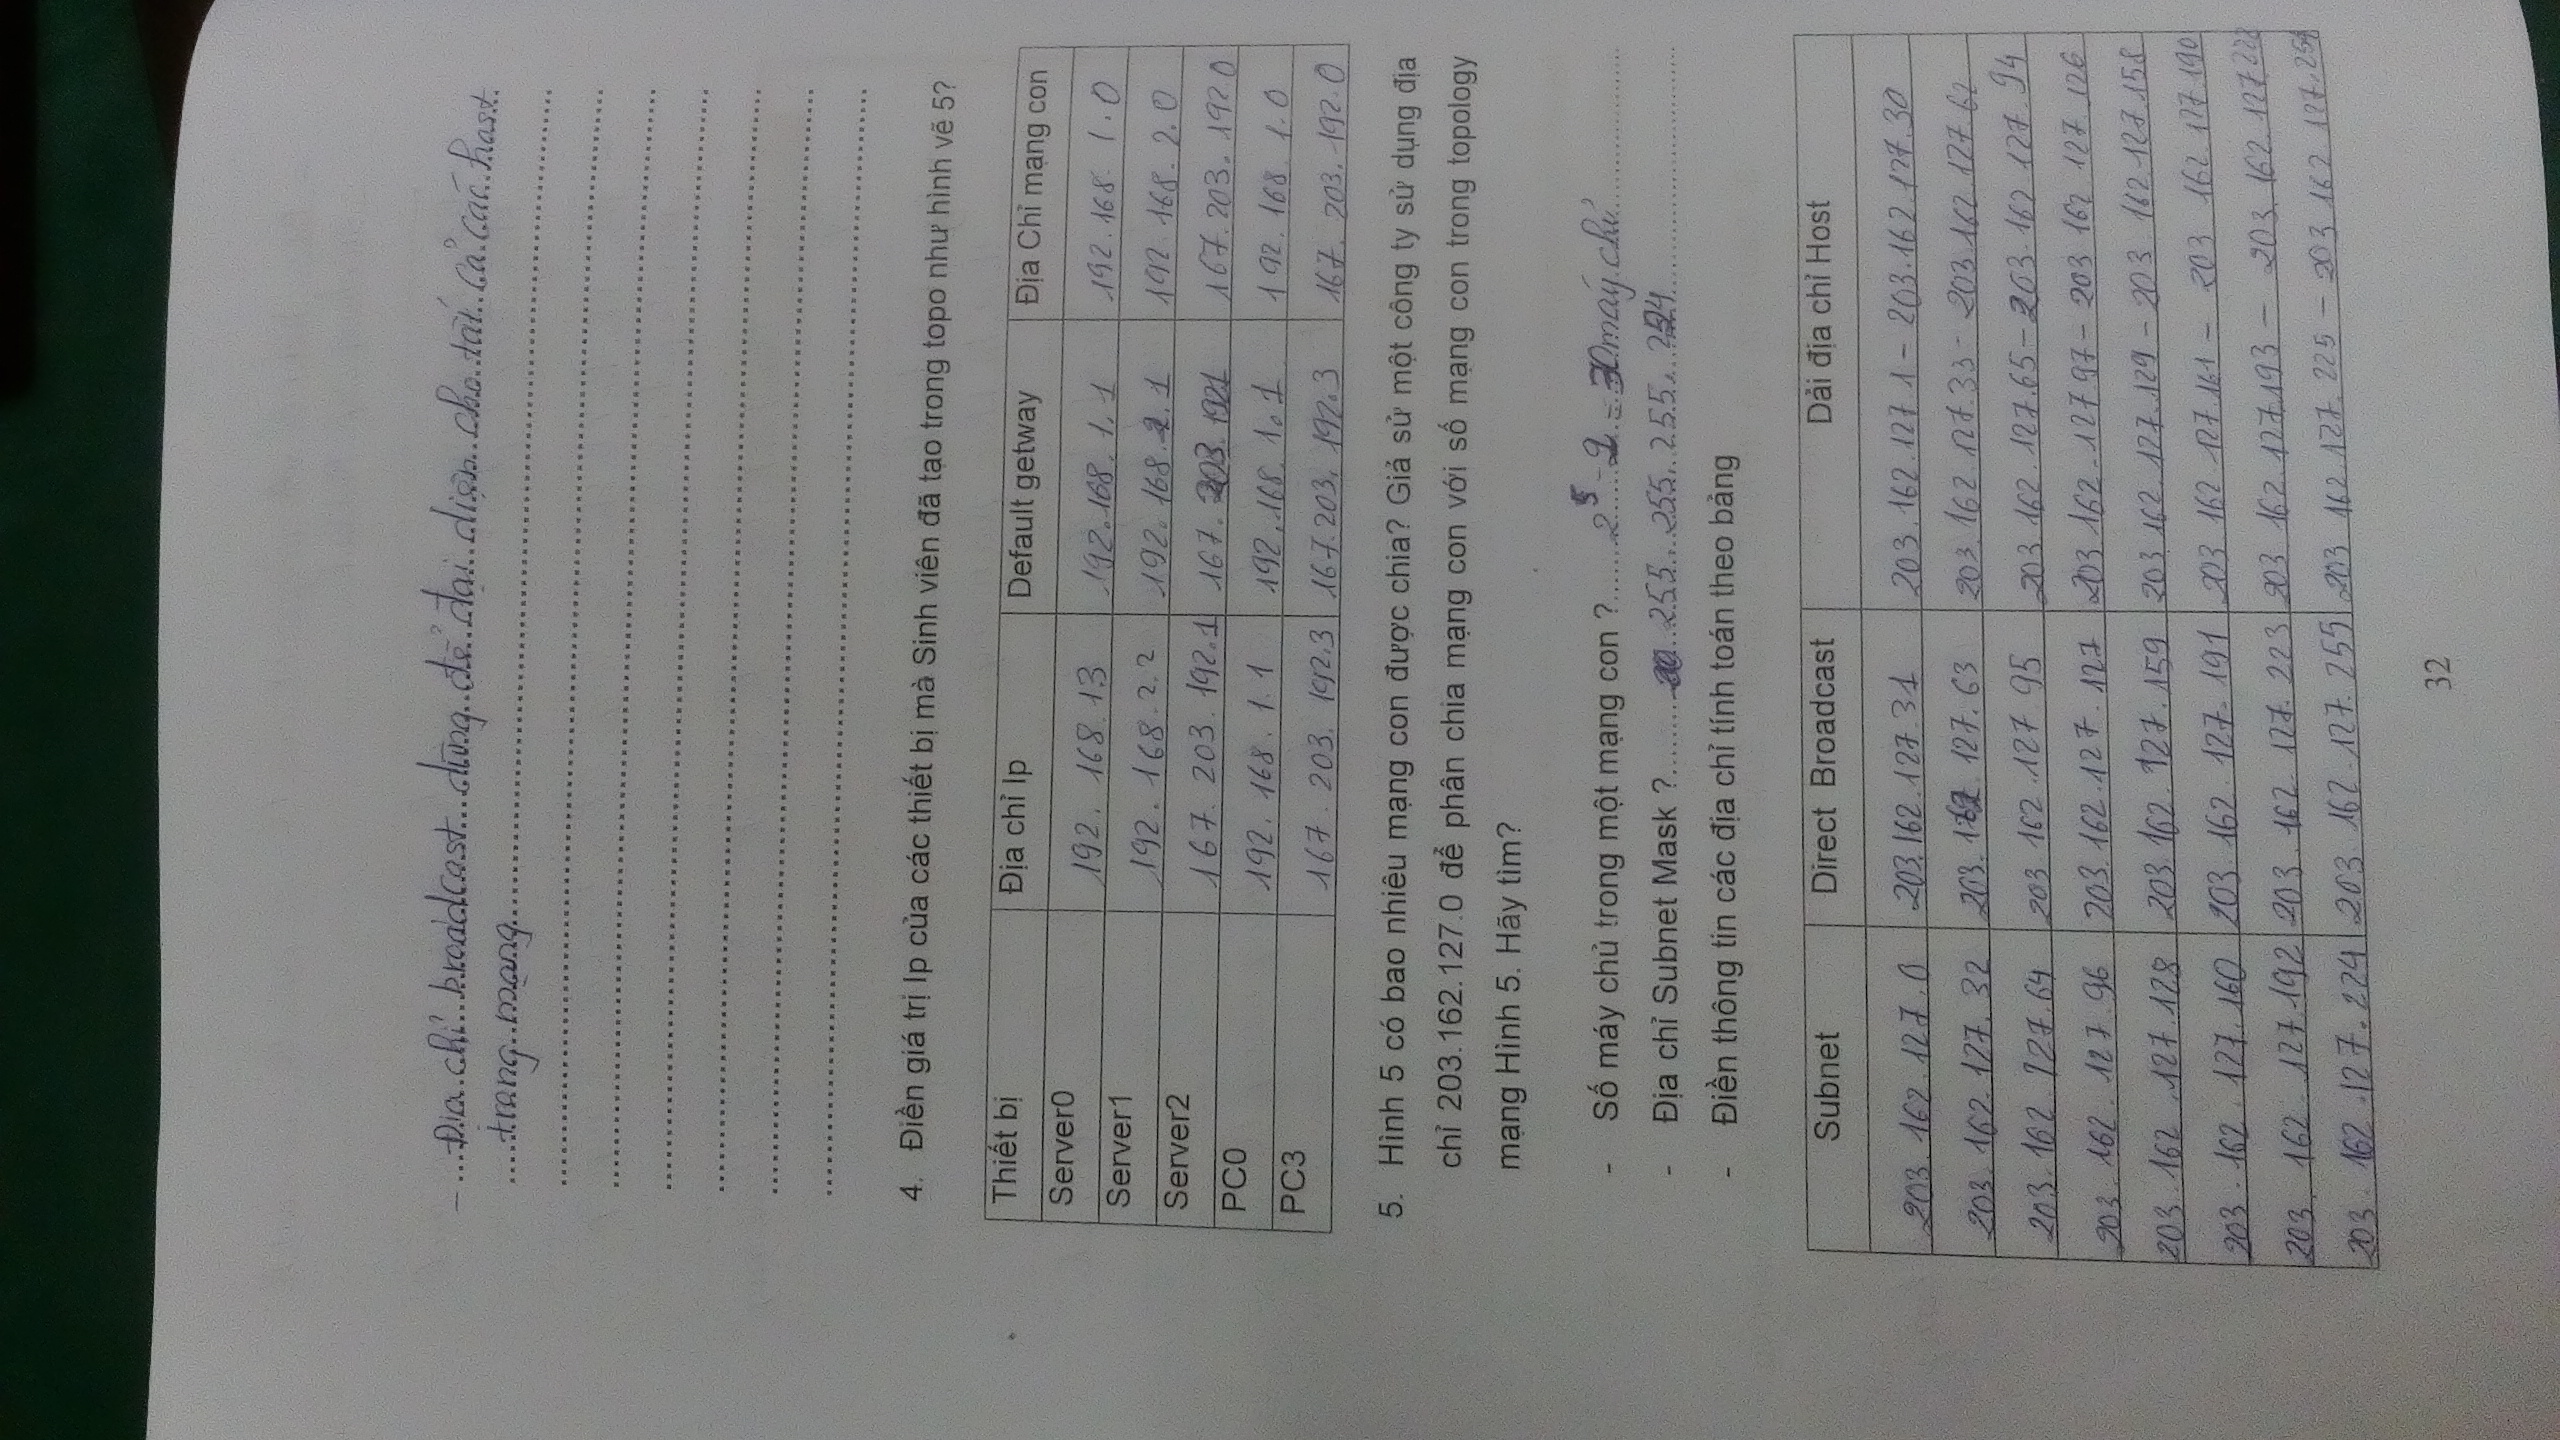 - Địa chỉ broadcast dùng để đại diện cho tất cả các host
trong mạng
4. Điền giá trị Ip của các thiết bị mà Sinh viên đã tạo trong topo như hình vẽ 5?
Thiết bị Địa chỉ Ip Default getway Địa Chỉ mạng con
Server0 192.168.13 192.168.1.1 192.168.1.0
Server1 192.168.2.2 192.168.2.1 192.168.2.0
Server2 167.203.192.1 167.203.1921 167.203.192.0
PC0 192.168.1.1 192.168.1.1 192.168.1.0
PC3 167.203.192.3 167.203.192.3 167.203.192.0
5. Hình 5 có bao nhiêu mạng con được chia? Giả sử một công ty sử dụng địa
chỉ 203.162.127.0 để phân chia mạng con với số mạng con trong topology
mạng Hình 5. Hãy tìm?
- Số máy chủ trong một mạng con ? 2^5 - 2 = 30 máy chủ
- Địa chỉ Subnet Mask ? 255.255.255.
- Điền thông tin các địa chỉ tính toán theo bảng
Subnet Direct Broadcast Dải địa chỉ Host
203.162.127.0 203.162.127.31 203.162.127.1 - 203.162.127.30
203.162.127.32 203.162.127.63 203.162.127.33 - 203.162.127.62
203.162.127.64 203.162.127.95 203.162.127.65 - 203.162.127.94
203.162.127.96 203.162.127.127 203.162.127.97 - 203.162.127.126
203.162.127.128 203.162.127.159 203.162.127.129 - 203.162.127.158
203.162.127.160 203.162.127.191 203.162.127.161 - 203.162.127.190
203.162.127.192 203.162.127.223 203.162.127.193 - 203.162.127.222
203.162.127.224 203.162.127.255 203.162.127.225 - 203.162.127.254
32